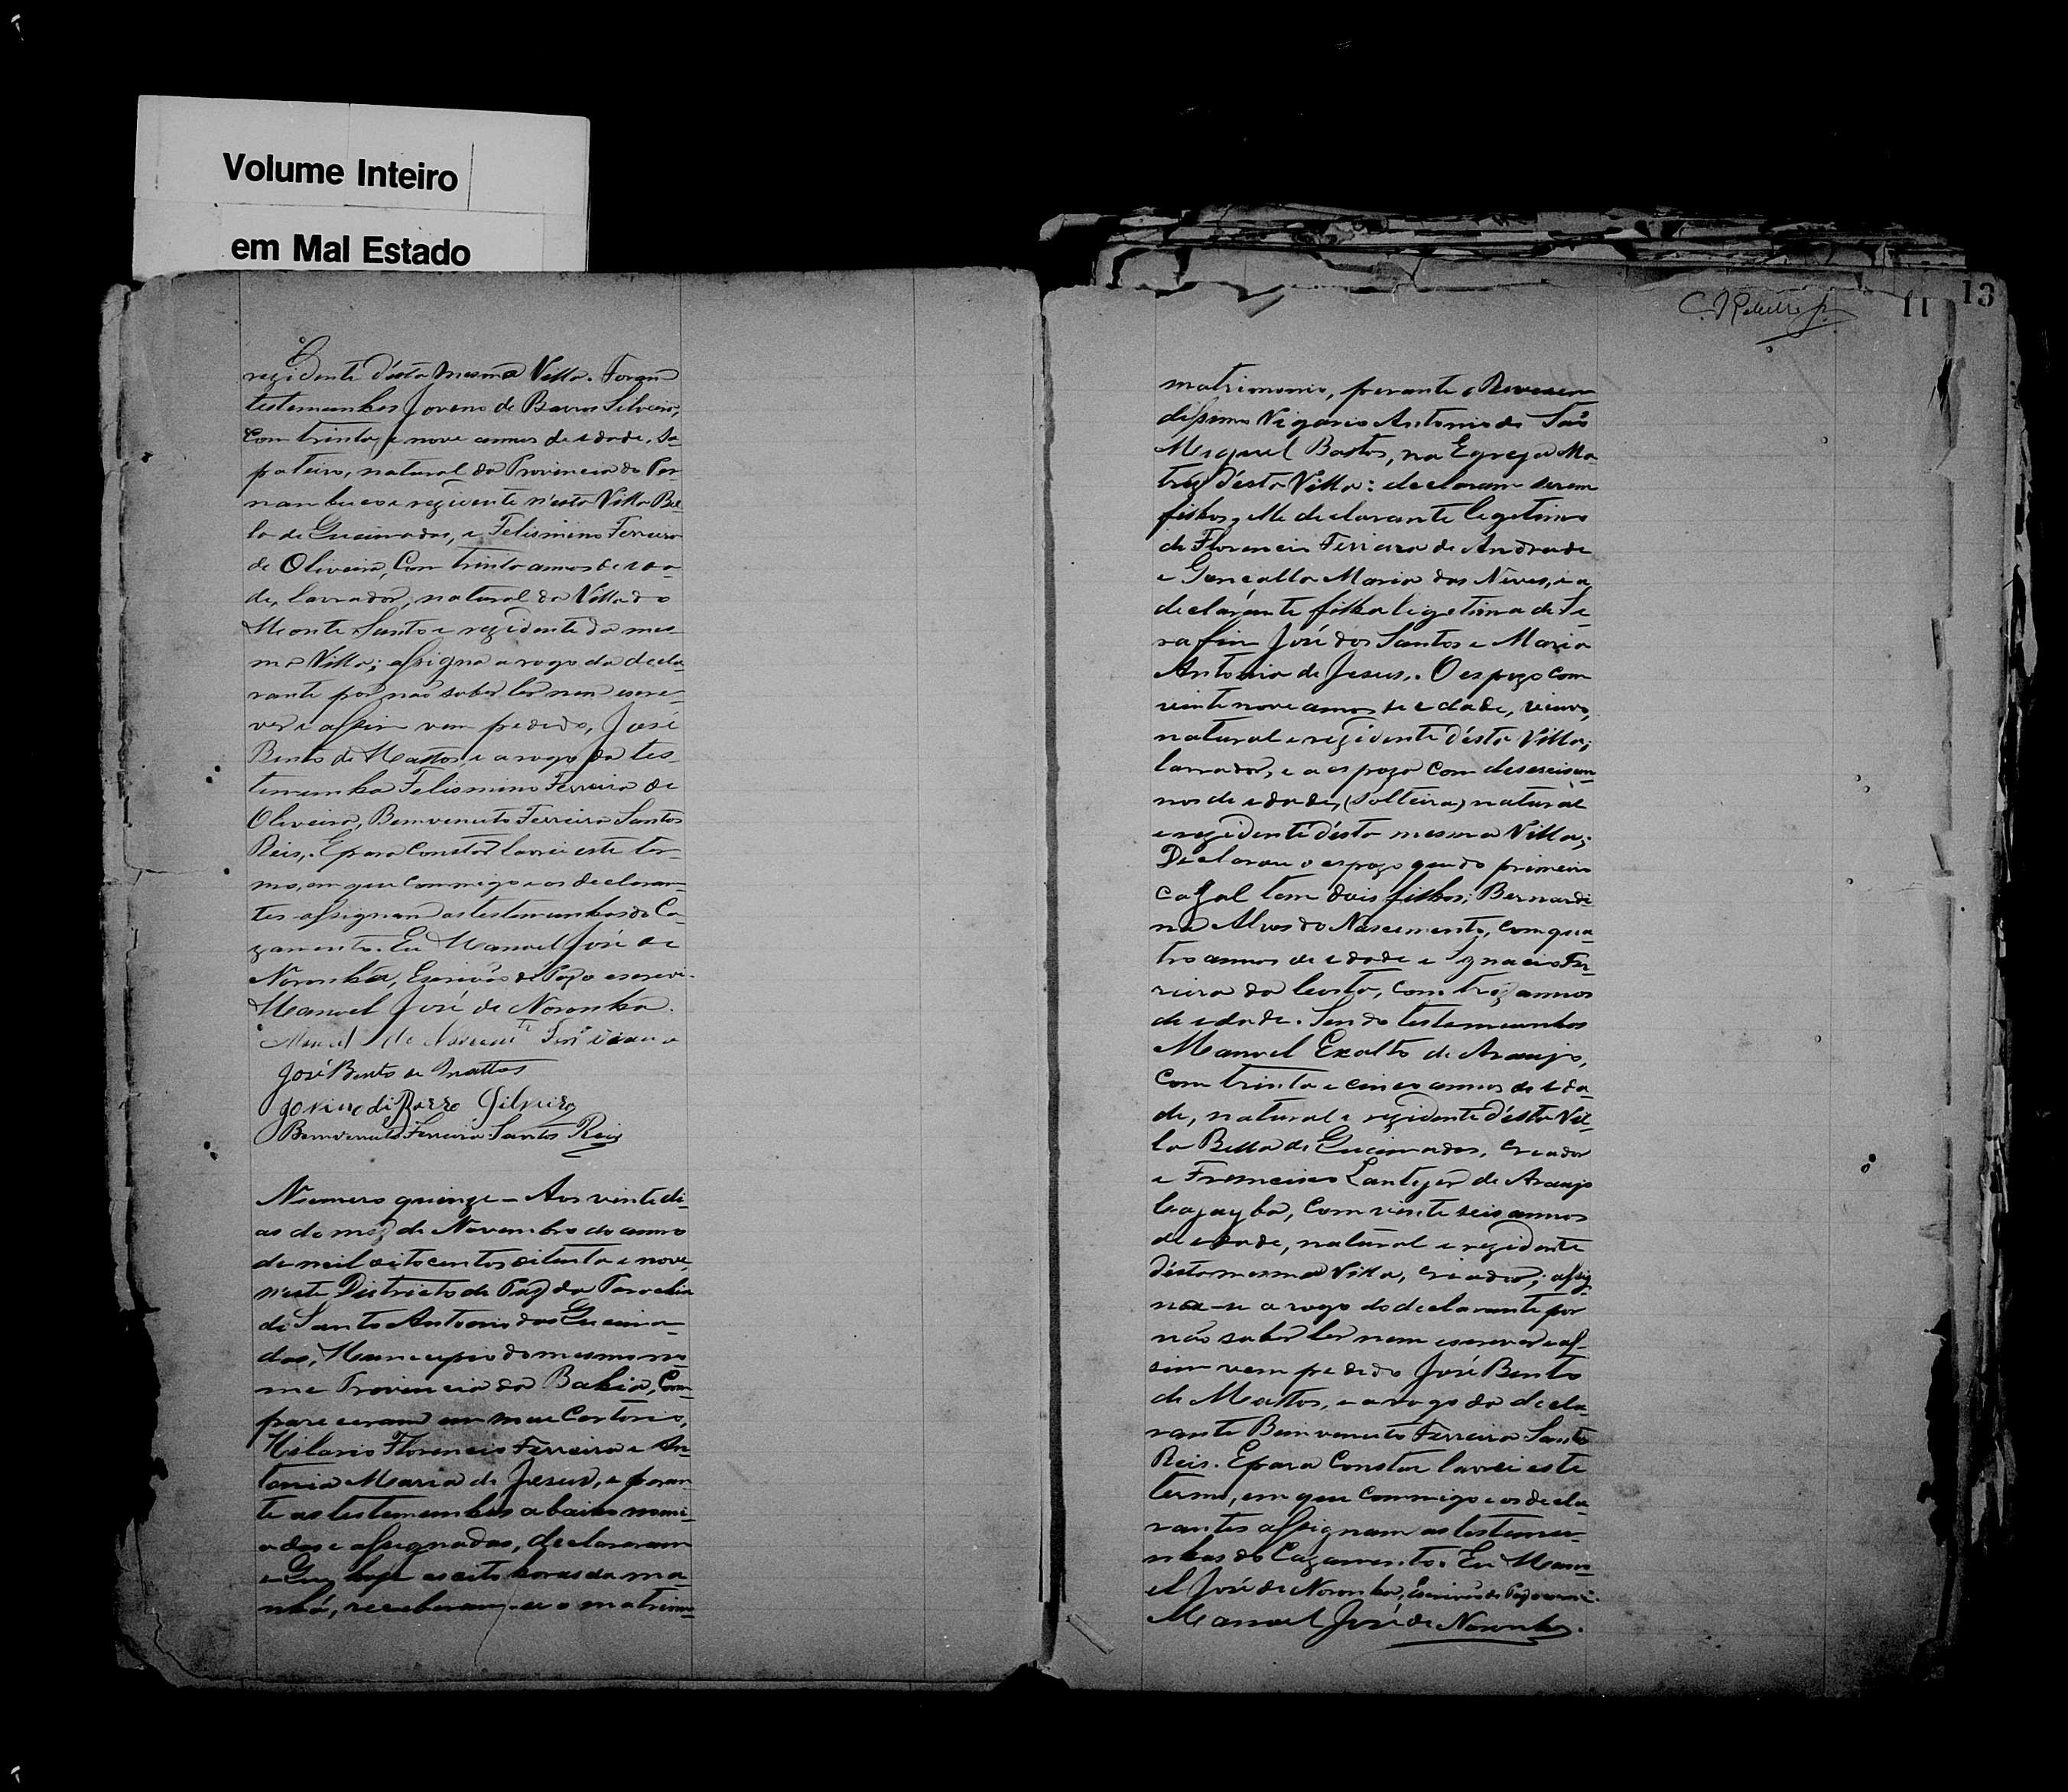 Volume Inteiro
em Mal Estado
rezidente d'ésta mesma Villa. Foram
testemunhas Joveno de Barros Silveira,
com trinta e nove annos de edade, sa-
pateiro, natural da Provincia de Per-
nambuco e rezidente n'esta Villa Bel-
la de Queimadas, e Felismino Ferreira
de Oliveira, Com trinta annos de eda-
de, lavrador, natural da Villa do
Monte Santo e rezidente da mes-
ma Villa; assigna a rogo da decla-
rante por não saber ler nem escre-
ver e assim vem pedido, José
Bento de Mattos e a rogo da tes-
temunha Felismino Ferreira de
Oliveira, Bemvenuto Ferreira Santos
Reis. E para constar lavrei este ter-
mo, em que commigo e os declaran-
tes assignam as testemunhas do Ca-
zamento. Eu Manoel José de
Noronha, Escrivão de Paz o escrevi.
Manoel José de Noronha.
José Bento de Mattos
Jovino di Barro Silveira
Bemvenuto Ferreira Santos Reis
Numero quinze – Aos vinte di-
as do mez de Novembro do anno
de mil oitocentos oitenta e nove,
n'este Districto de Paz da Parochia
de Santo Antonio das Queima-
das, Municipio do mesmo no-
me Provincia da Bahia, Com-
pareceram em meu Cartorio,
Hilario Florencio Ferreira e An-
tonia Maria de Jesus, e peran-
te as testemunhas abaixo nome-
adas e assignadas, declararam
que hoje as oito horas da ma-
nhã, receberam-se o matrimo-
11
13
matrimonio, perante o Reveren-
dissimo Vigario Antonio de São
Miguel Bastos, na Egreja Ma-
triz d'ésta Villa: declaram serem
filhos, elle declarante legetimo
de Florencio Ferreira de Andrade
e Goncalla Maria das Neves, e a
declarante filha legetima de Se-
rafim José dos Santos e Maria
Antonia de Jesus. O espozo com
vinte nove annos de edade, viuvo,
natural e rezidente d'ésta Villa,
lavrador, e a espoza com deseseis an-
nos de edade, (solteira) natural
e rezidente d'ésta mesma Villa;
Declarou o espozo que do primeiro
cazal tem dois filhos: Bernardi-
na Alves do Nascimento, com qua-
tro annos de edade e Ignacio Fer-
reira da Costa, com trez annos
de edade. Sendo testemunhas
Manoel Exalto de Araujo,
Com trinta e cinco annos de eda-
de, natural e rezidente d'ésta Vil-
la Bella de Queimadas, Creador
e Francisco Lantejer de Araujo
Cajayba, Com vinte seis annos
de edade, natural e rezidente
d'ésta mesma Villa, creador; assig-
na-se a rogo do declarante por
não saber ler nem escrever e as-
sim vem pedido José Bento
de Mattos, e a rogo da decla-
rante Bemvenuto Ferreira Santos
Reis. E para Constar lavrei este
termo, em que commigo e os decla-
rantes assignam as testemu-
nhas do Cazamento. Eu Mano-
el José de Noronha, Escrivão de Paz o escrevi.
Manoel José de Noronha.